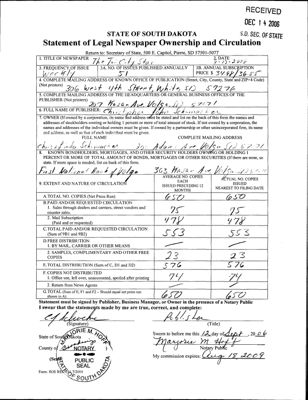 RECEIVED
DEC 14 2006
S.D. SEC. OF STATE
STATE OF SOUTH DAKOTA
Statement of Legal Newspaper Ownership and Circulation
Return to: Secretary of State, 500 E. Capitol, Pierre, SD 57501-5077
1. TITLE OF NEWSPAPER The Tri-City Star
2. DATE
3. FREQUENCY OF ISSUE Weekly
3A. NO. OF ISSUES PUBLISHED ANNUALLY 51
3B. ANNUAL SUBSCRIPTION PRICE $
4. COMPLETE MAILING ADDRESS OF KNOWN OFFICE OF PUBLICATION (Street, City, County, State and ZIP+4 Code) (Not printer)
5. COMPLETE MAILING ADDRESS OF THE HEADQUARTERS OR GENERAL BUSINESS OFFICES OF THE PUBLISHER (Not printer)
6. FULL NAME OF PUBLISHER:
7. OWNER (If owned by a corporation, its name and address must be stated and list on the back of this form the names and addresses of stockholders owning or holding 1 percent or more of total amount of stock. If not owned by a corporation, the names and addresses of the individual owners must be given. If owned by a partnership or other unincorporated firm, its name and address, as well as that of each individual must be given.
FULL NAME
COMPLETE MAILING ADDRESS
8. KNOWN BONDHOLDERS, MORTGAGEES, AND OTHER SECURITY HOLDERS OWNING OR HOLDING 1 PERCENT OR MORE OF TOTAL AMOUNT OF BONDS, MORTGAGES OR OTHER SECURITIES (If there are none, so state. If more space is needed, list on back of this form.
First National Bank of Volga
9. EXTENT AND NATURE OF CIRCULATION
AVERAGE NO. COPIES EACH ISSUED PRECEDING 12 MONTHS
ACTUAL NO. COPIES ISSUED NEAREST TO FILING DATE
A. TOTAL NO. COPIES (Net Press Run) 650 650
B. PAID AND/OR REQUESTED CIRCULATION
1. Sales through dealers and carriers, street vendors and counter sales. 75 75
2. Mail Subscription (Paid and or requested) 478 478
C. TOTAL PAID AND/OR REQUESTED CIRCULATION (Sum of 9B1 and 9B2) 553 553
D. FREE DISTRIBUTION
1. BY MAIL, CARRIER OR OTHER MEANS
2. SAMPLES, COMPLIMENTARY AND OTHER FREE COPIES 23 23
E. TOTAL DISTRIBUTION (Sum of C, D1 and D2) 576 576
F. COPIES NOT DISTRIBUTED
1. Office use, left over, unaccounted, spoiled after printing 74 74
2. Return from News Agents
G. TOTAL (Sum of E, F1 and F2 - Should equal net press run shown in A) 650 650
Statement must be signed by Publisher, Business Manager, or Owner in the presence of a Notary Public
I swear that the statements made by me are true, correct, and complete:
(Signature)
Publisher
(Title)
State of South Dakota
County of
Sworn to before me this 12 day of Sept. 2006
Marjorie M. Hoff
Notary Public
My commission expires: Aug 18, 2009
(Seal)
MARJORIE M. HOFF
NOTARY
PUBLIC
SEAL
SOUTH DAKOTA